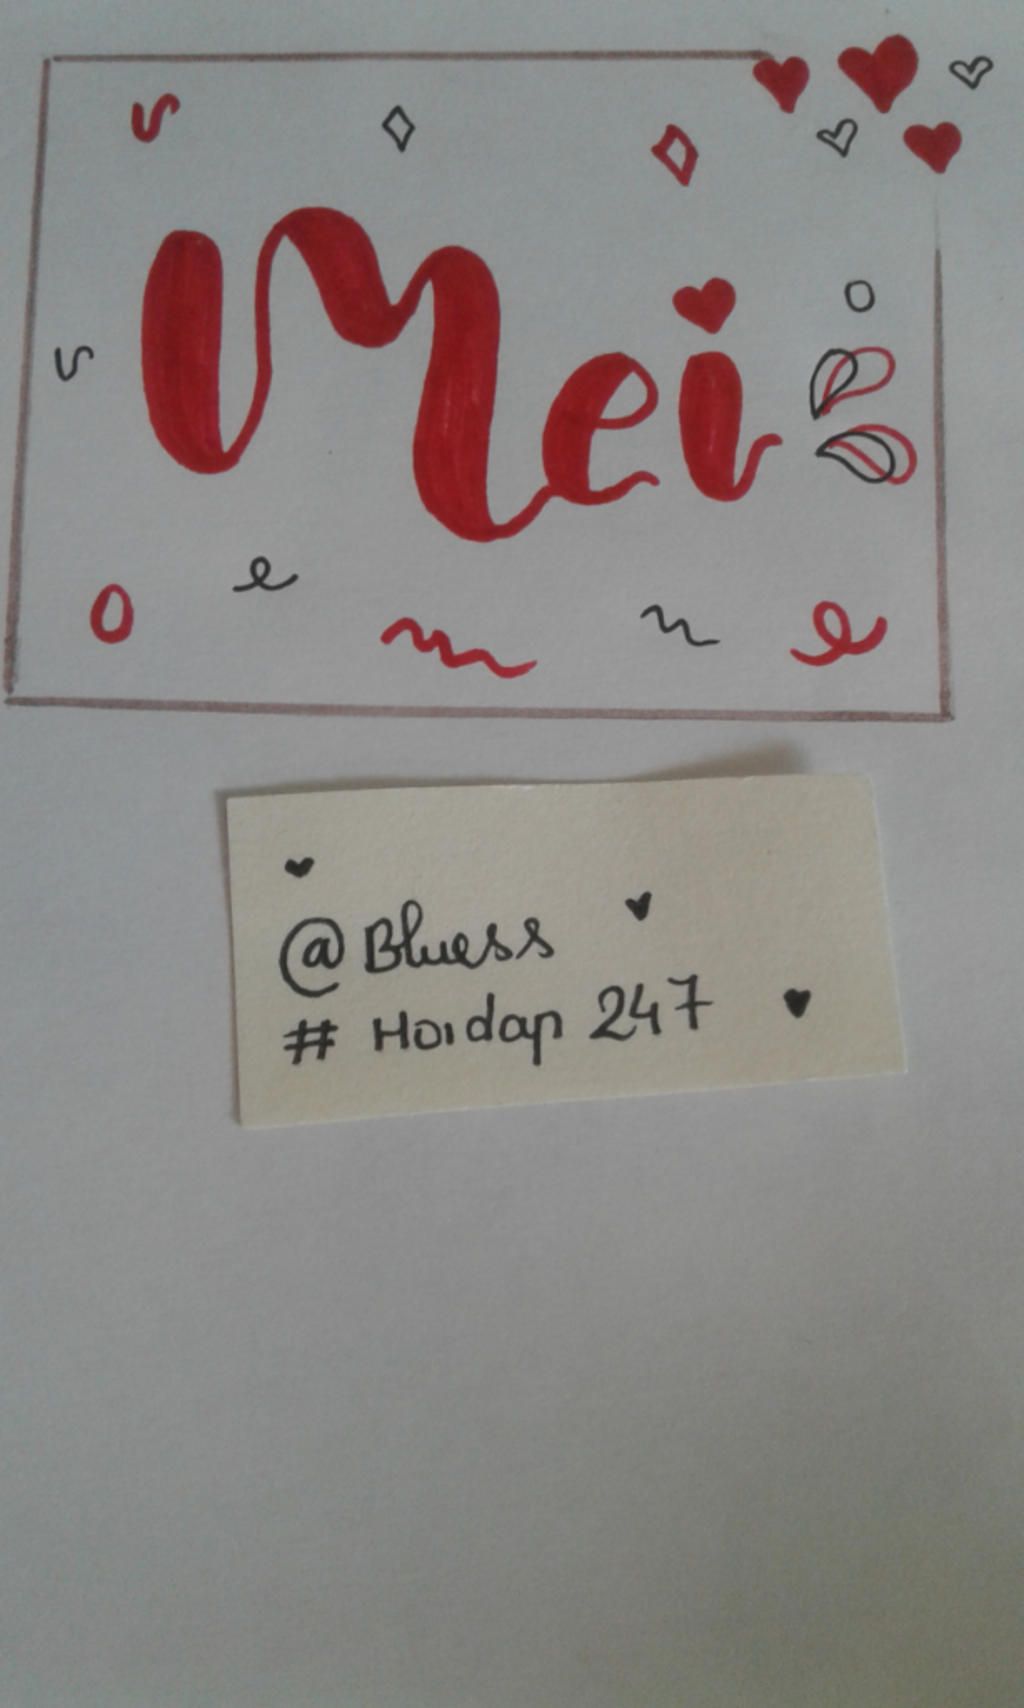 Mei
@Bluess
# Hoidap 247